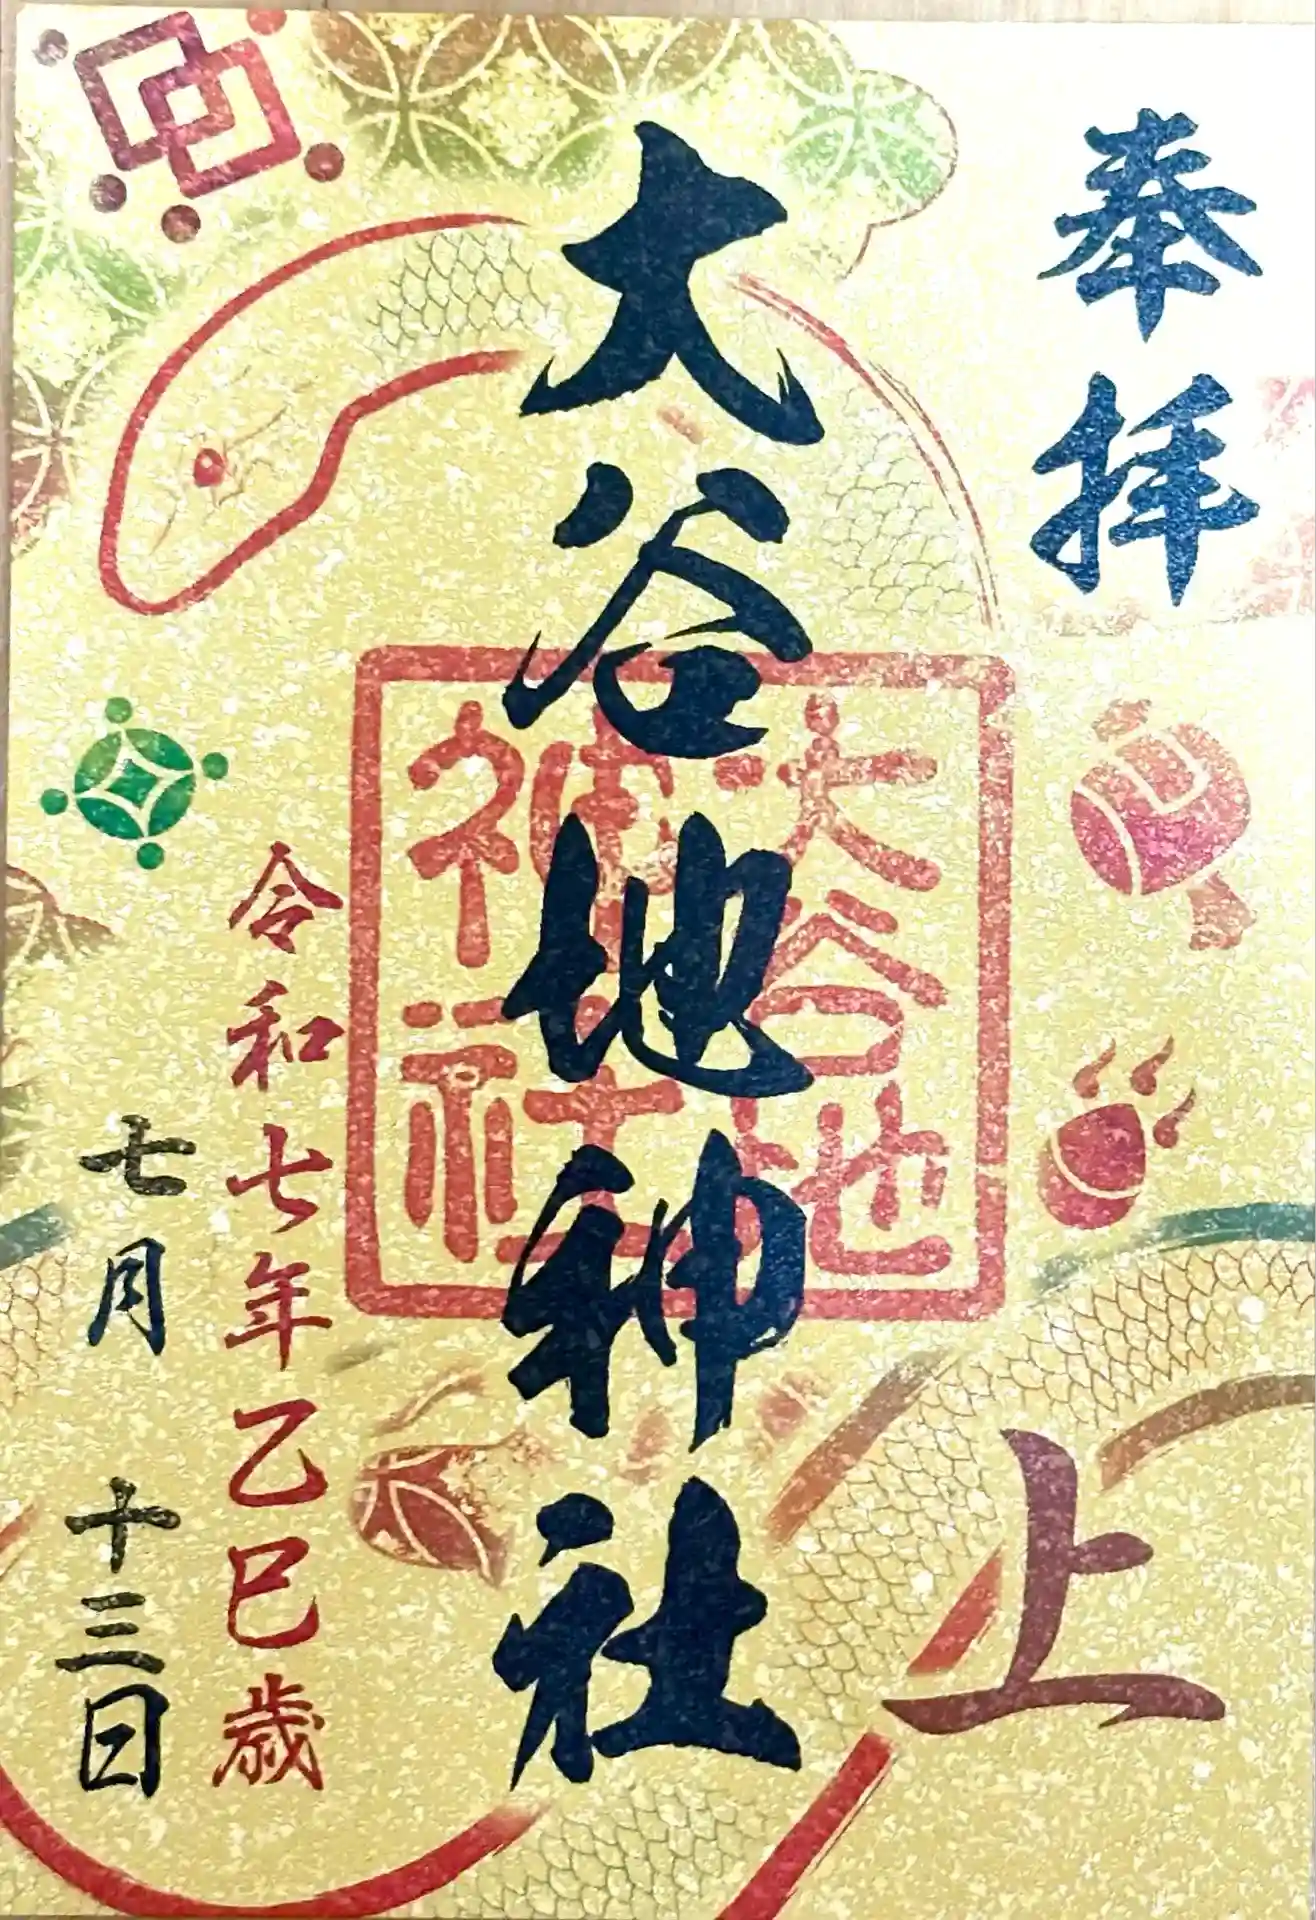 奉拝
上
大谷地神社
大谷地
神社
令和七年乙巳歳
七月十三日